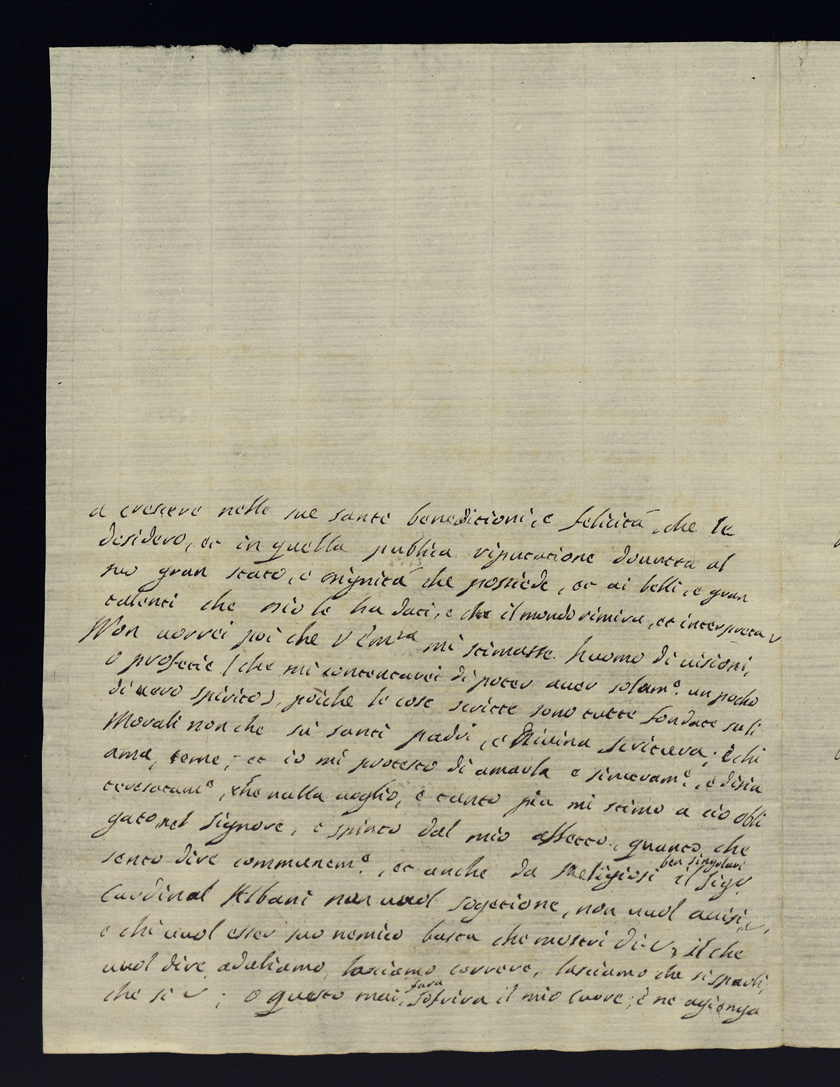 a crescere nelle sue sante beneditioni, e felicità, che le
desidero, et in quella publica riputatione dovuta al
suo gran stato, e dignità che possiede, et ai belli, e gran
talenti che Dio le ha dati, e che il mondo rimira, et interpreta
Non vorrei poi che V Em.za mi stimasse huomo di visioni,
o profetie (che mi contentarei di poter aver solam.e un pocho
di vero spirito), poiche le cose scritte sono tutte fondate su li
Morali non che sù santi padri, e Divina Scrittura; è chi
ama, teme; et io mi protesto di amarla e sinceram.e, e disin
teresatam.e, che nulla voglio, e tanto più mi stimo a ciò obli
gato nel Signore, e spinto dal mio affetto, quanto che
sento dire communem.e, et anche da Religiosi ben singulari il Sig.r
Cardinal Albani non vuol sogetione, non vuol avisi,
e chi vuol esser suo nemico basta che mostri di il che
vuol dire, aduliamo, lasciamo correre, lasciamo che si sparli,
che si ; o questo mai fara sofrira il mio cuore; è ne agionga